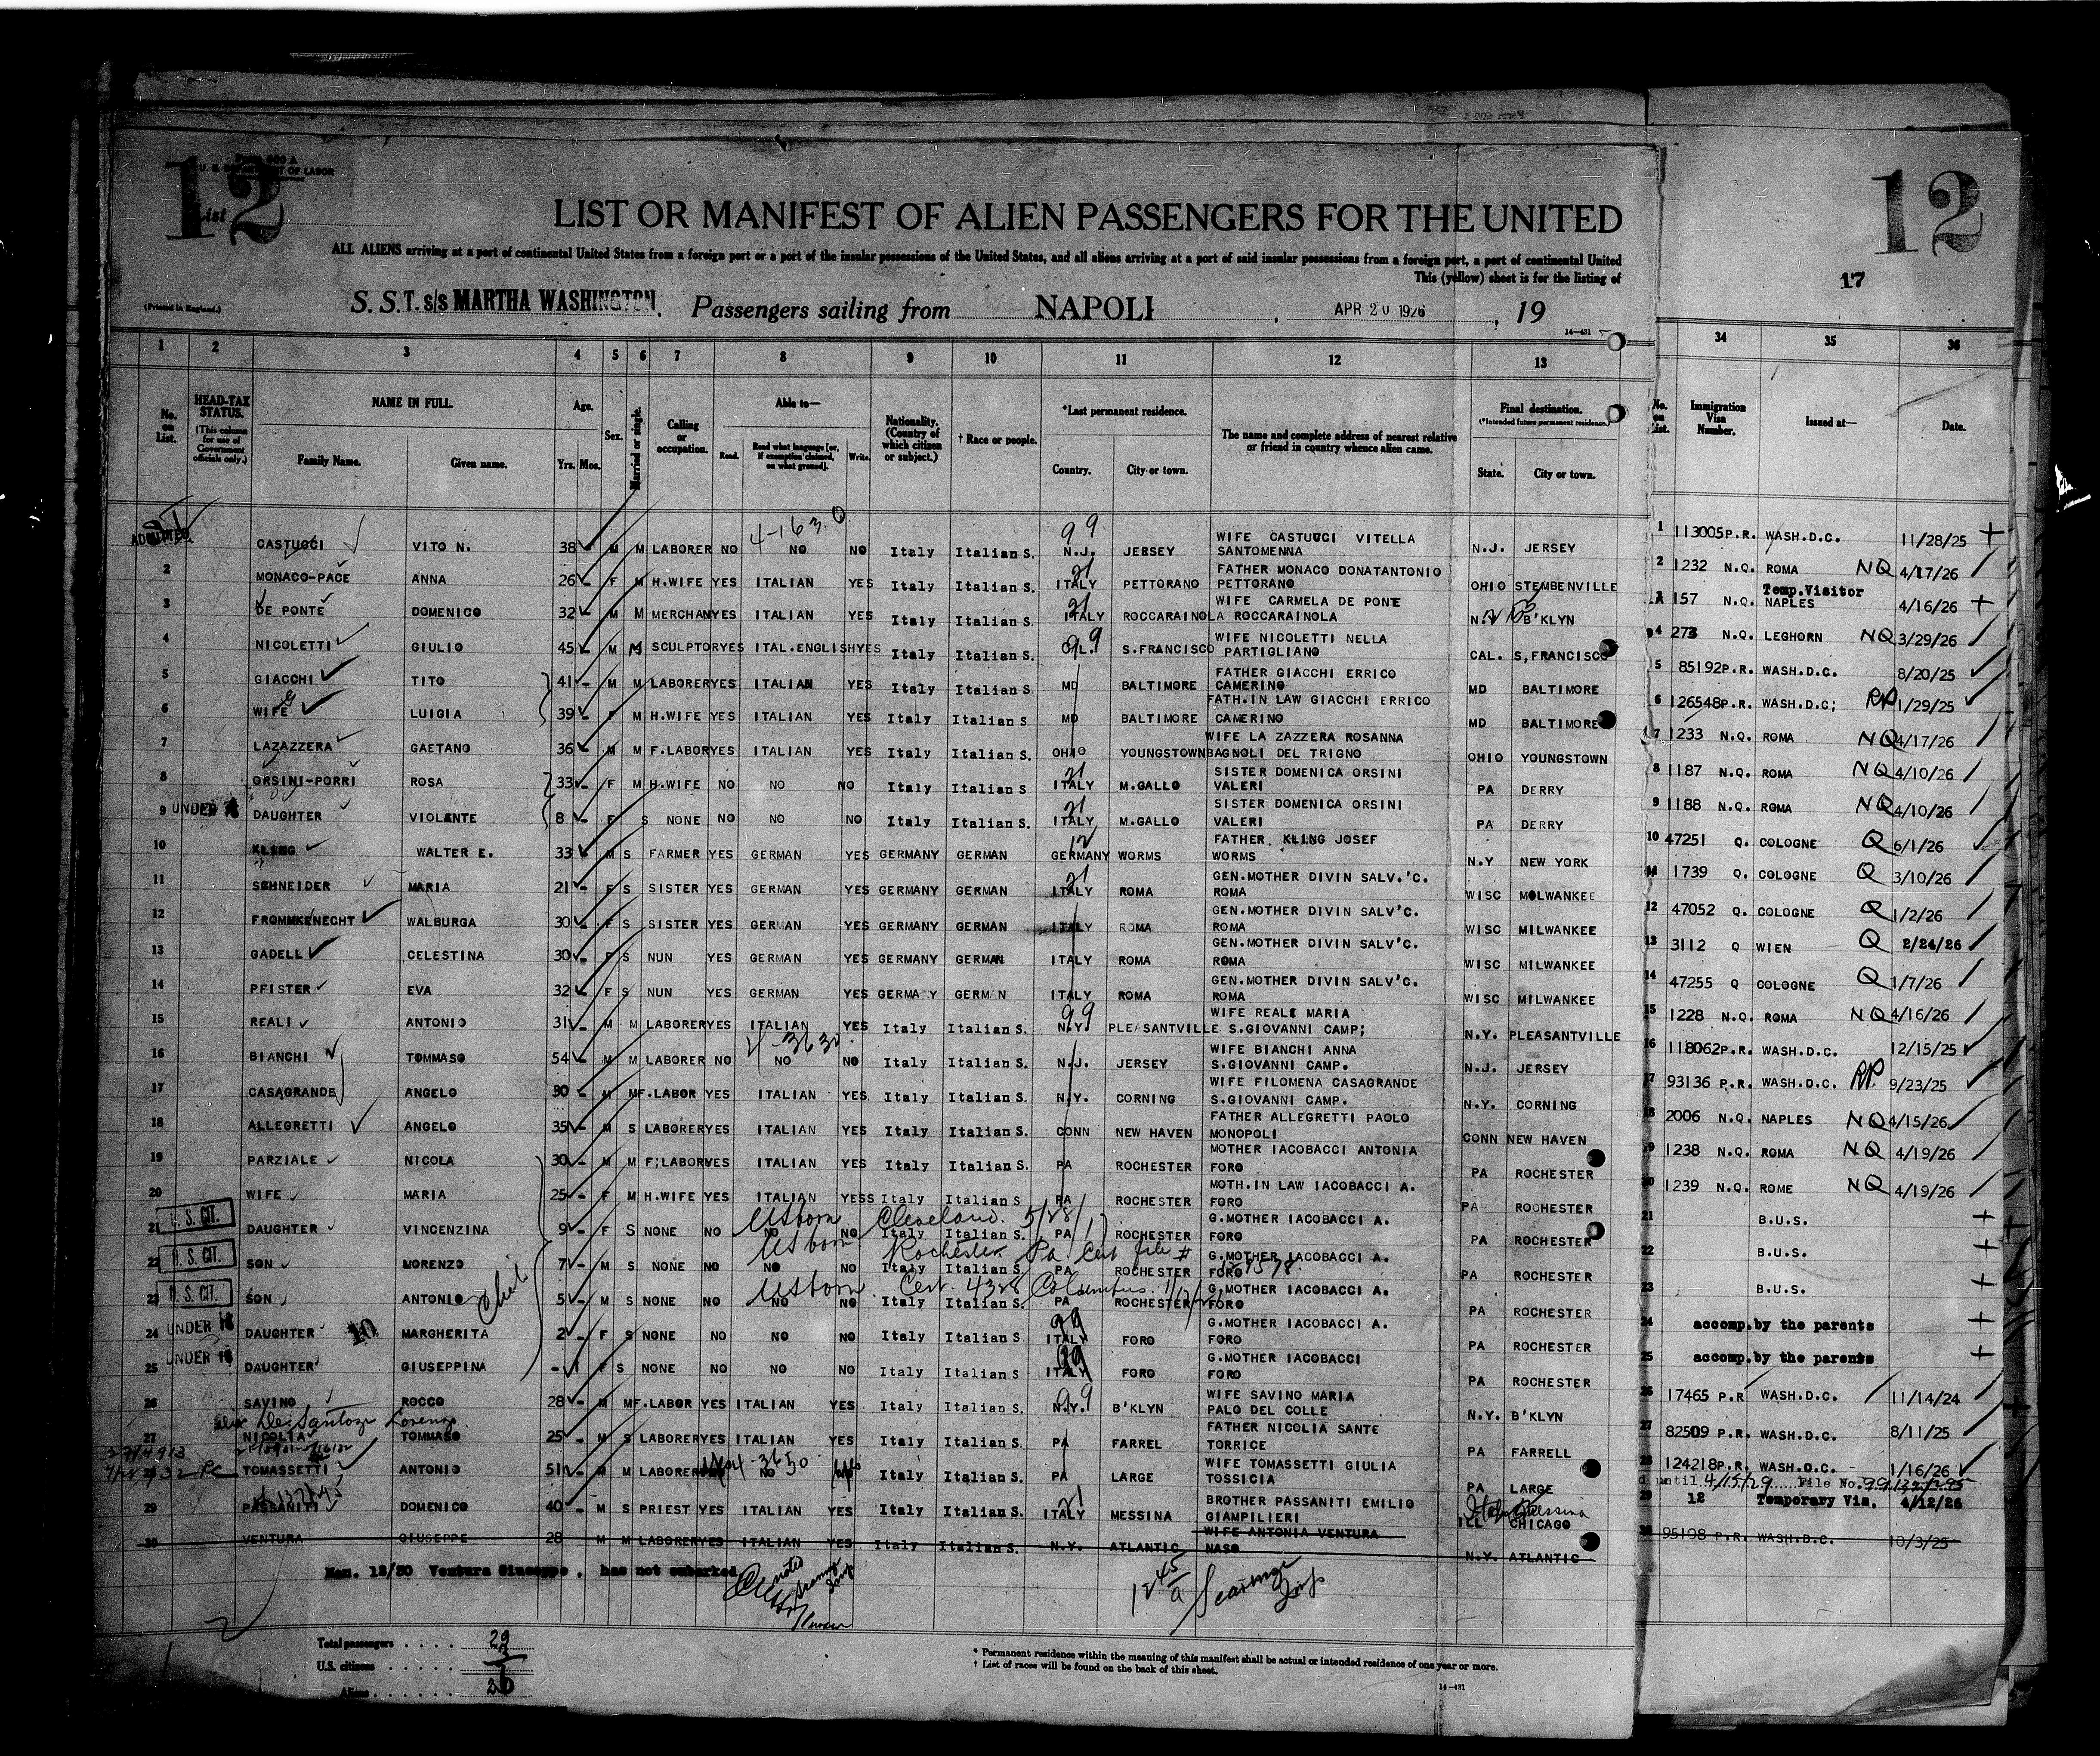 12
Form 500 A
U. S. DEPARTMENT OF LABOR
List
12
17
LIST OR MANIFEST OF ALIEN PASSENGERS FOR THE UNITED
ALL ALIENS arriving at a port of continental United States from a foreign port or a port of the insular possessions of the United States, and all aliens arriving at a port of said insular possessions from a foreign port, a port of continental United
This (yellow) sheet is for the listing of
(Printed in England.)
S. S. T. s/s MARTHA WASHINGTON. Passengers sailing from NAPOLI, APR 20 1926, 19
14—431
1 2 3 4 5 6 7 8 9 10 11 12 13 34 35 36
No. on List. HEAD-TAX STATUS. (This column for use of Government officials only.) NAME IN FULL. Family Name. Given name. Age. Yrs. Mos. Sex. Married or single. Calling or occupation. Able to— Read. Read what language [or, if exemption claimed, on what ground]. Write. Nationality. (Country of which citizen or subject.) † Race or people. *Last permanent residence. Country. City or town. The name and complete address of nearest relative or friend in country whence alien came. Final destination. (*Intended future permanent residence.) State. City or town. No. on List. Immigration Visa Number. Issued at— Date.
ADMITTED CASTUCCI VITO N. 38 M M LABORER NO 4-163 NO NO Italy Italian S. 99 N.J. JERSEY WIFE CASTUCCI VITELLA SANTOMENNA N.J. JERSEY 1 113005 P.R. WASH.D.C. 11/28/25
2 MONACO-PACE ANNA 26 F M H.WIFE YES ITALIAN YES Italy Italian S. 21 ITALY PETTORANO FATHER MONACO DONATANTONIO PETTORANO OHIO STEMBENVILLE 2 1232 N.Q. ROMA NQ 4/17/26
3 DE PONTE DOMENICO 32 M M MERCHAN YES ITALIAN YES Italy Italian S. 21 ITALY ROCCARAINOLA WIFE CARMELA DE PONTE ROCCARAINOLA B'KLYN 157 N.Q. Temp.Visitor NAPLES 4/16/26
4 NICOLETTI GIULIO 45 M M SCULPTOR YES ITAL.ENGLISH YES Italy Italian S. 99 S.FRANCISCO WIFE NICOLETTI NELLA PARTIGLIANO CAL. S,FRANCISCO 4 273 N.Q. LEGHORN NQ 3/29/26
5 GIACCHI TITO 41 M M LABORER YES ITALIAN YES Italy Italian S. MD BALTIMORE FATHER GIACCHI ERRICO CAMERINO MD BALTIMORE 5 85192 P.R. WASH.D.C. 8/20/25
6 WIFE G LUIGIA 39 F M H.WIFE YES ITALIAN YES Italy Italian S MD BALTIMORE FATH.IN LAW GIACCHI ERRICO CAMERINO MD BALTIMORE 6 126548 P.R. WASH.D.C; RP 1/29/25
7 LAZAZZERA GAETANO 36 M M F.LABOR YES ITALIAN YES Italy Italian S OHIO YOUNGSTOWN WIFE LA ZAZZERA ROSANNA BAGNOLI DEL TRIGNO OHIO YOUNGSTOWN 7 1233 N.Q. ROMA NQ 4/17/26
8 ORSINI-PORRI ROSA 33 F M H.WIFE NO NO NO Italy Italian S 21 ITALY M.GALLO SISTER DOMENICA ORSINI VALERI PA DERRY 8 1187 N.Q. ROMA NQ 4/10/26
9 UNDER 16 DAUGHTER VIOLANTE 8 F S NONE NO NO NO Italy Italian S. 21 ITALY M.GALLO SISTER DOMENICA ORSINI VALERI PA DERRY 9 1188 N.Q. ROMA NQ 4/10/26
10 KLING WALTER E. 33 M S FARMER YES GERMAN YES GERMANY GERMAN 12 GERMANY WORMS FATHER KLING JOSEF WORMS N.Y NEW YORK 10 47251 Q. COLOGNE Q 6/1/26
11 SCHNEIDER MARIA 21 F S SISTER YES GERMAN YES GERMANY GERMAN 21 ITALY ROMA GEN.MOTHER DIVIN SALV.'C. ROMA WISC MOLWANKEE 11 1739 Q. COLOGNE Q 3/10/26
12 FROMMKENECHT WALBURGA 30 F S SISTER YES GERMAN YES GERMANY GERMAN ITALY ROMA GEN.MOTHER DIVIN SALV'C. ROMA WISC MILWANKEE 12 47052 Q. COLOGNE Q 1/2/26
13 GADELL CELESTINA 30 F S NUN YES GERMAN YES GERMANY GERMAN ITALY ROMA GEN.MOTHER DIVIN SALV'C. ROMA WISC MILWANKEE 13 3112 Q WIEN Q 2/24/26
14 PFISTER EVA 32 F S NUN YES GERMAN YES GERMA Y GERM N ITALY ROMA GEN.MOTHER DIVIN SALV'C. ROMA WISC MILWANKEE 14 47255 Q COLOGNE Q 1/7/26
15 REALI ANTONIO 31 M M LABORER YES ITALIAN YES Italy Italian S. 99 N.Y. PLEASANTVILLE WIFE REALI MARIA S.GIOVANNI CAMP; N.Y. PLEASANTVILLE 15 1228 N.Q. ROMA NQ 4/16/26
16 BIANCHI TOMMASO 54 M M LABORER NO NO NO Italy Italian S. N.J. JERSEY WIFE BIANCHI ANNA S.GIOVANNI CAMP. N.J. JERSEY 16 118062 P.R. WASH.D.C. 12/15/25
17 CASAGRANDE ANGELO 30 M M F.LABOR YES ITALIAN YES Italy Italian S. N.Y. CORNING WIFE FILOMENA CASAGRANDE S.GIOVANNI CAMP. N.Y. CORNING 17 93136 P.R. WASH.D.C. RP. 9/23/25
18 ALLEGRETTI ANGELO 35 M S LABORER YES ITALIAN YES Italy Italian S. CONN NEW HAVEN FATHER ALLEGRETTI PAOLO MONOPOLI CONN NEW HAVEN 18 2006 N.Q. NAPLES NQ 4/15/26
19 PARZIALE NICOLA 30 M M F;LABOR YES ITALIAN YES Italy Italian S. PA ROCHESTER MOTHER IACOBACCI ANTONIA FORO PA ROCHESTER 19 1238 N.Q. ROMA NQ 4/19/26
20 WIFE MARIA 25 F M H.WIFE YES ITALIAN YESS Italy Italian S PA ROCHESTER MOTH.IN LAW IACOBACCI A. FORO PA ROCHESTER 20 1239 N.Q. ROME NQ 4/19/26
21 U. S. CIT. DAUGHTER VINCENZINA 9 F S NONE NO NO NO US born Cleveland. Italy Italian S. PA ROCHESTER G.MOTHER IACOBACCI A. FORO PA ROCHESTER 21 B.U.S.
22 U. S. CIT. SON LORENZO 7 M S NONE NO NO NO US born Rochester Pa Cert file # Italy Italian S. PA ROCHESTER G.MOTHER IACOBACCI A. FORO PA ROCHESTER 22 B.U.S.
23 U. S. CIT. SON ANTONIO 5 M S NONE NO NO NO US born Cert. 4328 Columbus. Italy Italian S. PA ROCHESTER G.MOTHER IACOBACCI A. FORO PA ROCHESTER 23 B.U.S.
24 UNDER 16 DAUGHTER 10 MARGHERITA 2 F S NONE NO NO NO Italy Italian S 99 ITALY FORO G.MOTHER IACOBACCI A. FORO PA ROCHESTER 24 accomp.by the parents
25 UNDER 16 DAUGHTER GIUSEPPINA - 1 F S NONE NO NO NO Italy Italian S 99 ITALY FORO G.MOTHER IACOBACCI FORO PA ROCHESTER 25 accomp.by the parents
26 SAVINO ROCCO 28 M M F.LABOR YES ITALIAN YES Italy Italian S. 99 N.Y. B'KLYN WIFE SAVINO MARIA PALO DEL COLLE N.Y. B'KLYN 26 17465 P.R WASH.D.C. 11/14/24
27 NICOLIA TOMMASO 25 M S LABORER YES ITALIAN YES Italy Italian S. PA FARREL FATHER NICOLIA SANTE TORRICE PA FARRELL 27 82509 P.R. WASH.D.C. 8/11/25
TOMASSETTI ANTONIO 51 M M LABORER NO Italy Italian S. PA LARGE WIFE TOMASSETTI GIULIA TOSSICIA PA LARGE 28 124218 P.R. WASH.D.C. 1/16/26
until 4/15/29 File No.
29 PASSANITI DOMENICO 40 M S PRIEST YES ITALIAN YES Italy Italian S. 21 ITALY MESSINA BROTHER PASSANITI EMILIO GIAMPILIERI ILL CHICAGO Messina 29 12 Temporary Vis. 4/12/26
30 VENTURA GIUSEPPE 28 M M LABORER YES ITALIAN YES Italy Italian S. N.Y. ATLANTIC WIFE ANTONIA VENTURA NASO N.Y. ATLANTIC 30 95108 P.R. WASH.D.C. 10/3/25
Man. 12/30 Ventura Giuseppe, has not embarked
Total passengers . . . . 29
U.S. citizens . . . . . 3
Aliens . . . . . . 26
* Permanent residence within the meaning of this manifest shall be actual or intended residence of one year or more.
† List of races will be found on the back of this sheet.
14—431